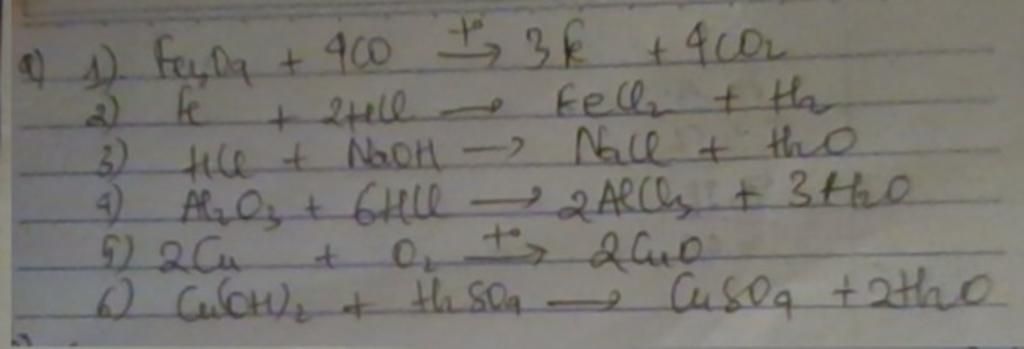 a) 1) Fe3O4 + 4CO t°→ 3Fe + 4CO2
2) Fe + 2HCl → FeCl2 + H2
3) HCl + NaOH → NaCl + H2O
4) Al2O3 + 6HCl → 2AlCl3 + 3H2O
5) 2Cu + O2 t°→ 2CuO
6) Cu(OH)2 + H2SO4 → CuSO4 + 2H2O